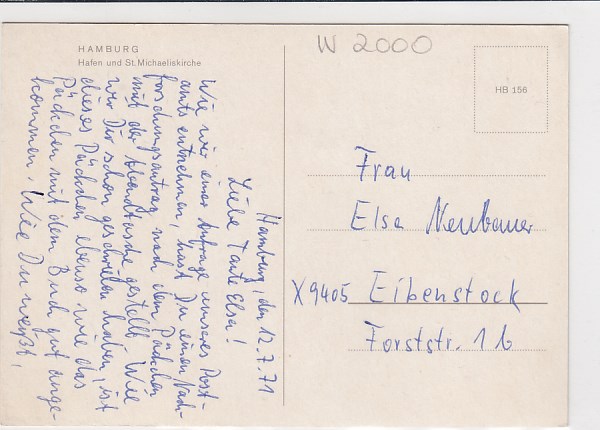 HAMBURG
Hafen und St. Michaeliskirche
W 2000
HB 156
Hamburg, den 12.7.71
Liebe Tante Elsa!
Wie wir einer Anfrage unseres Post-
amts entnehmen, hast Du einen Nach-
forschungsantrag nach dem Päckchen
mit der Handtasche gestellt. Wie
wir Dir schon geschrieben haben, ist
dieses Päckchen ebenso wie das
Päckchen mit dem Buch gut ange-
kommen. Wie Du weißt,
Frau
Elsa Neubauer
X9405 Eibenstock
Forststr. 1b